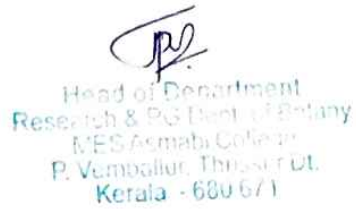 Head of Department
Research & PG Dept. of Botany
MES Asmabi College
P. Vemballur, Thrissur Dt.
Kerala - 680 671